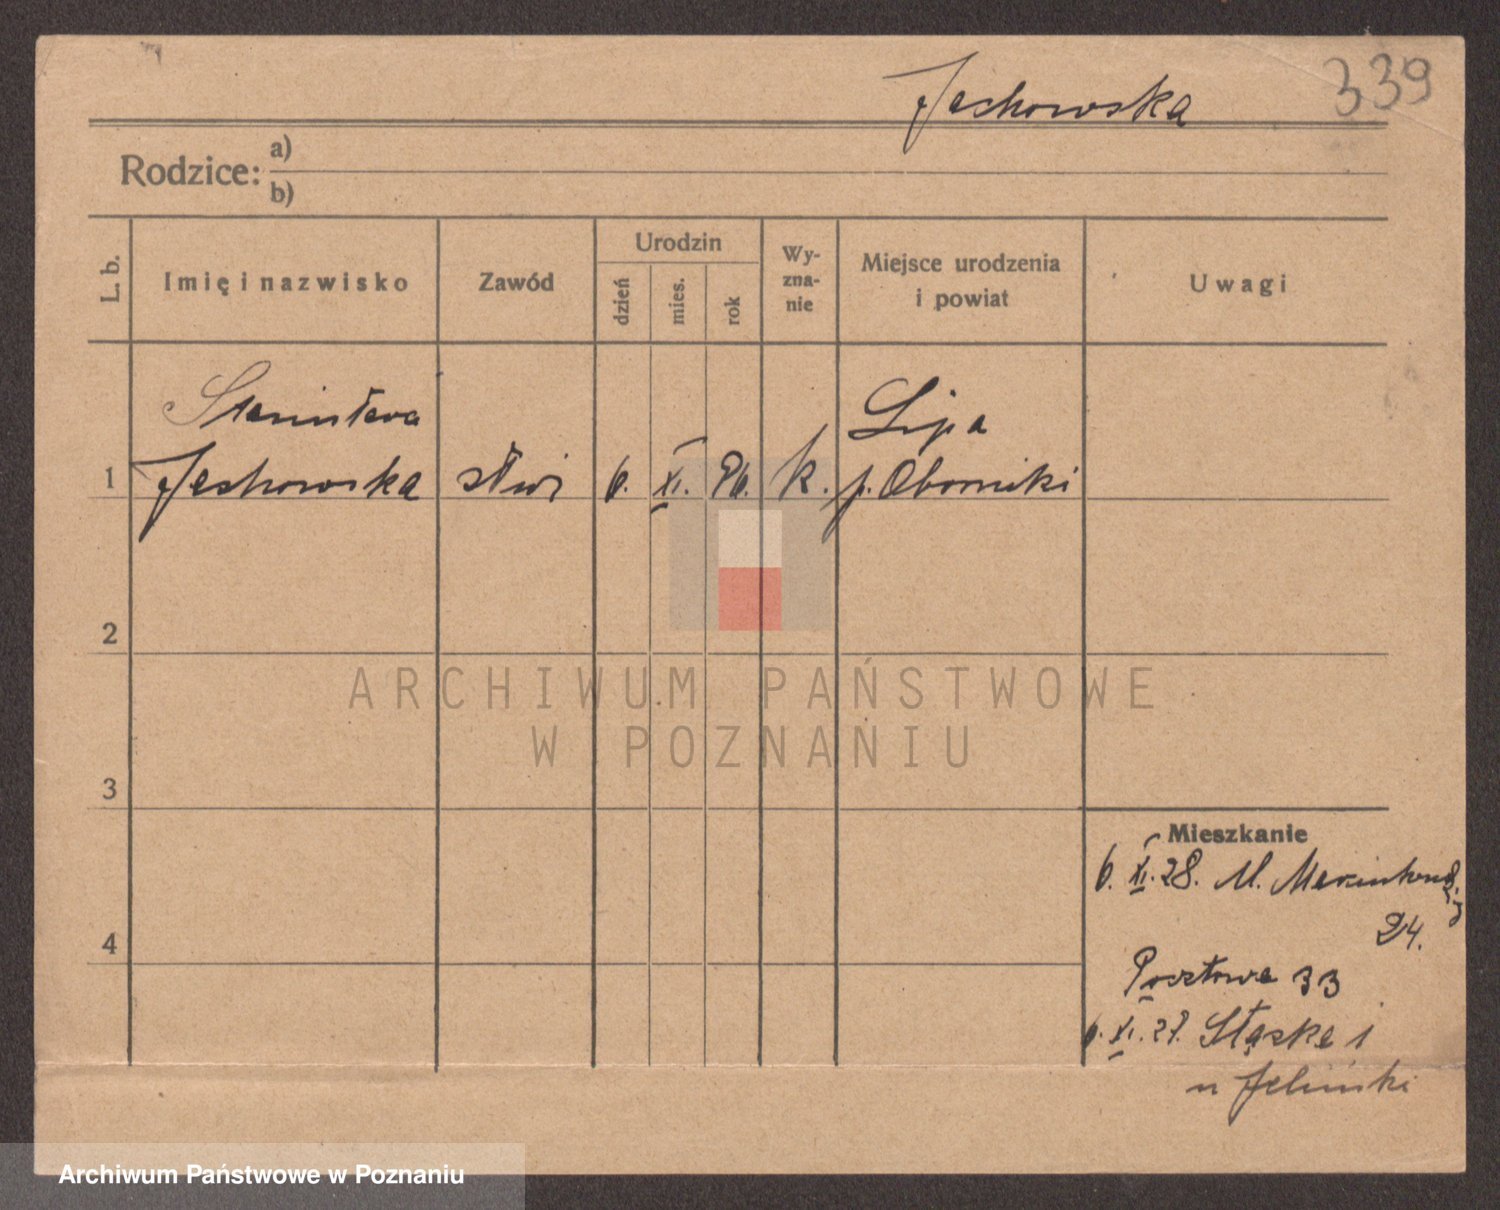 Jechowska 339
Rodzice: a)
b)
L. b. Imię i nazwisko Zawód Urodzin dzień mies. rok Wy-zna-nie Miejsce urodzenia i powiat Uwagi
Stanisława Lipa
1 Jechowska 6. XI. 96. k. p. Oborniki
2
ARCHIWUM PAŃSTWOWE
W POZNANIU
3
Mieszkanie
6. XI. 28. M.
24.
4
Pocztowa 33
6. XI. 27. Śląska 1
u Jeliński
Archiwum Państwowe w Poznaniu